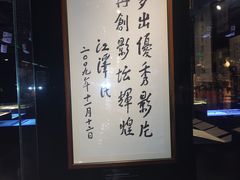 多出優秀影片
再創影坛輝煌
江泽民
二〇〇九年十二月十二日